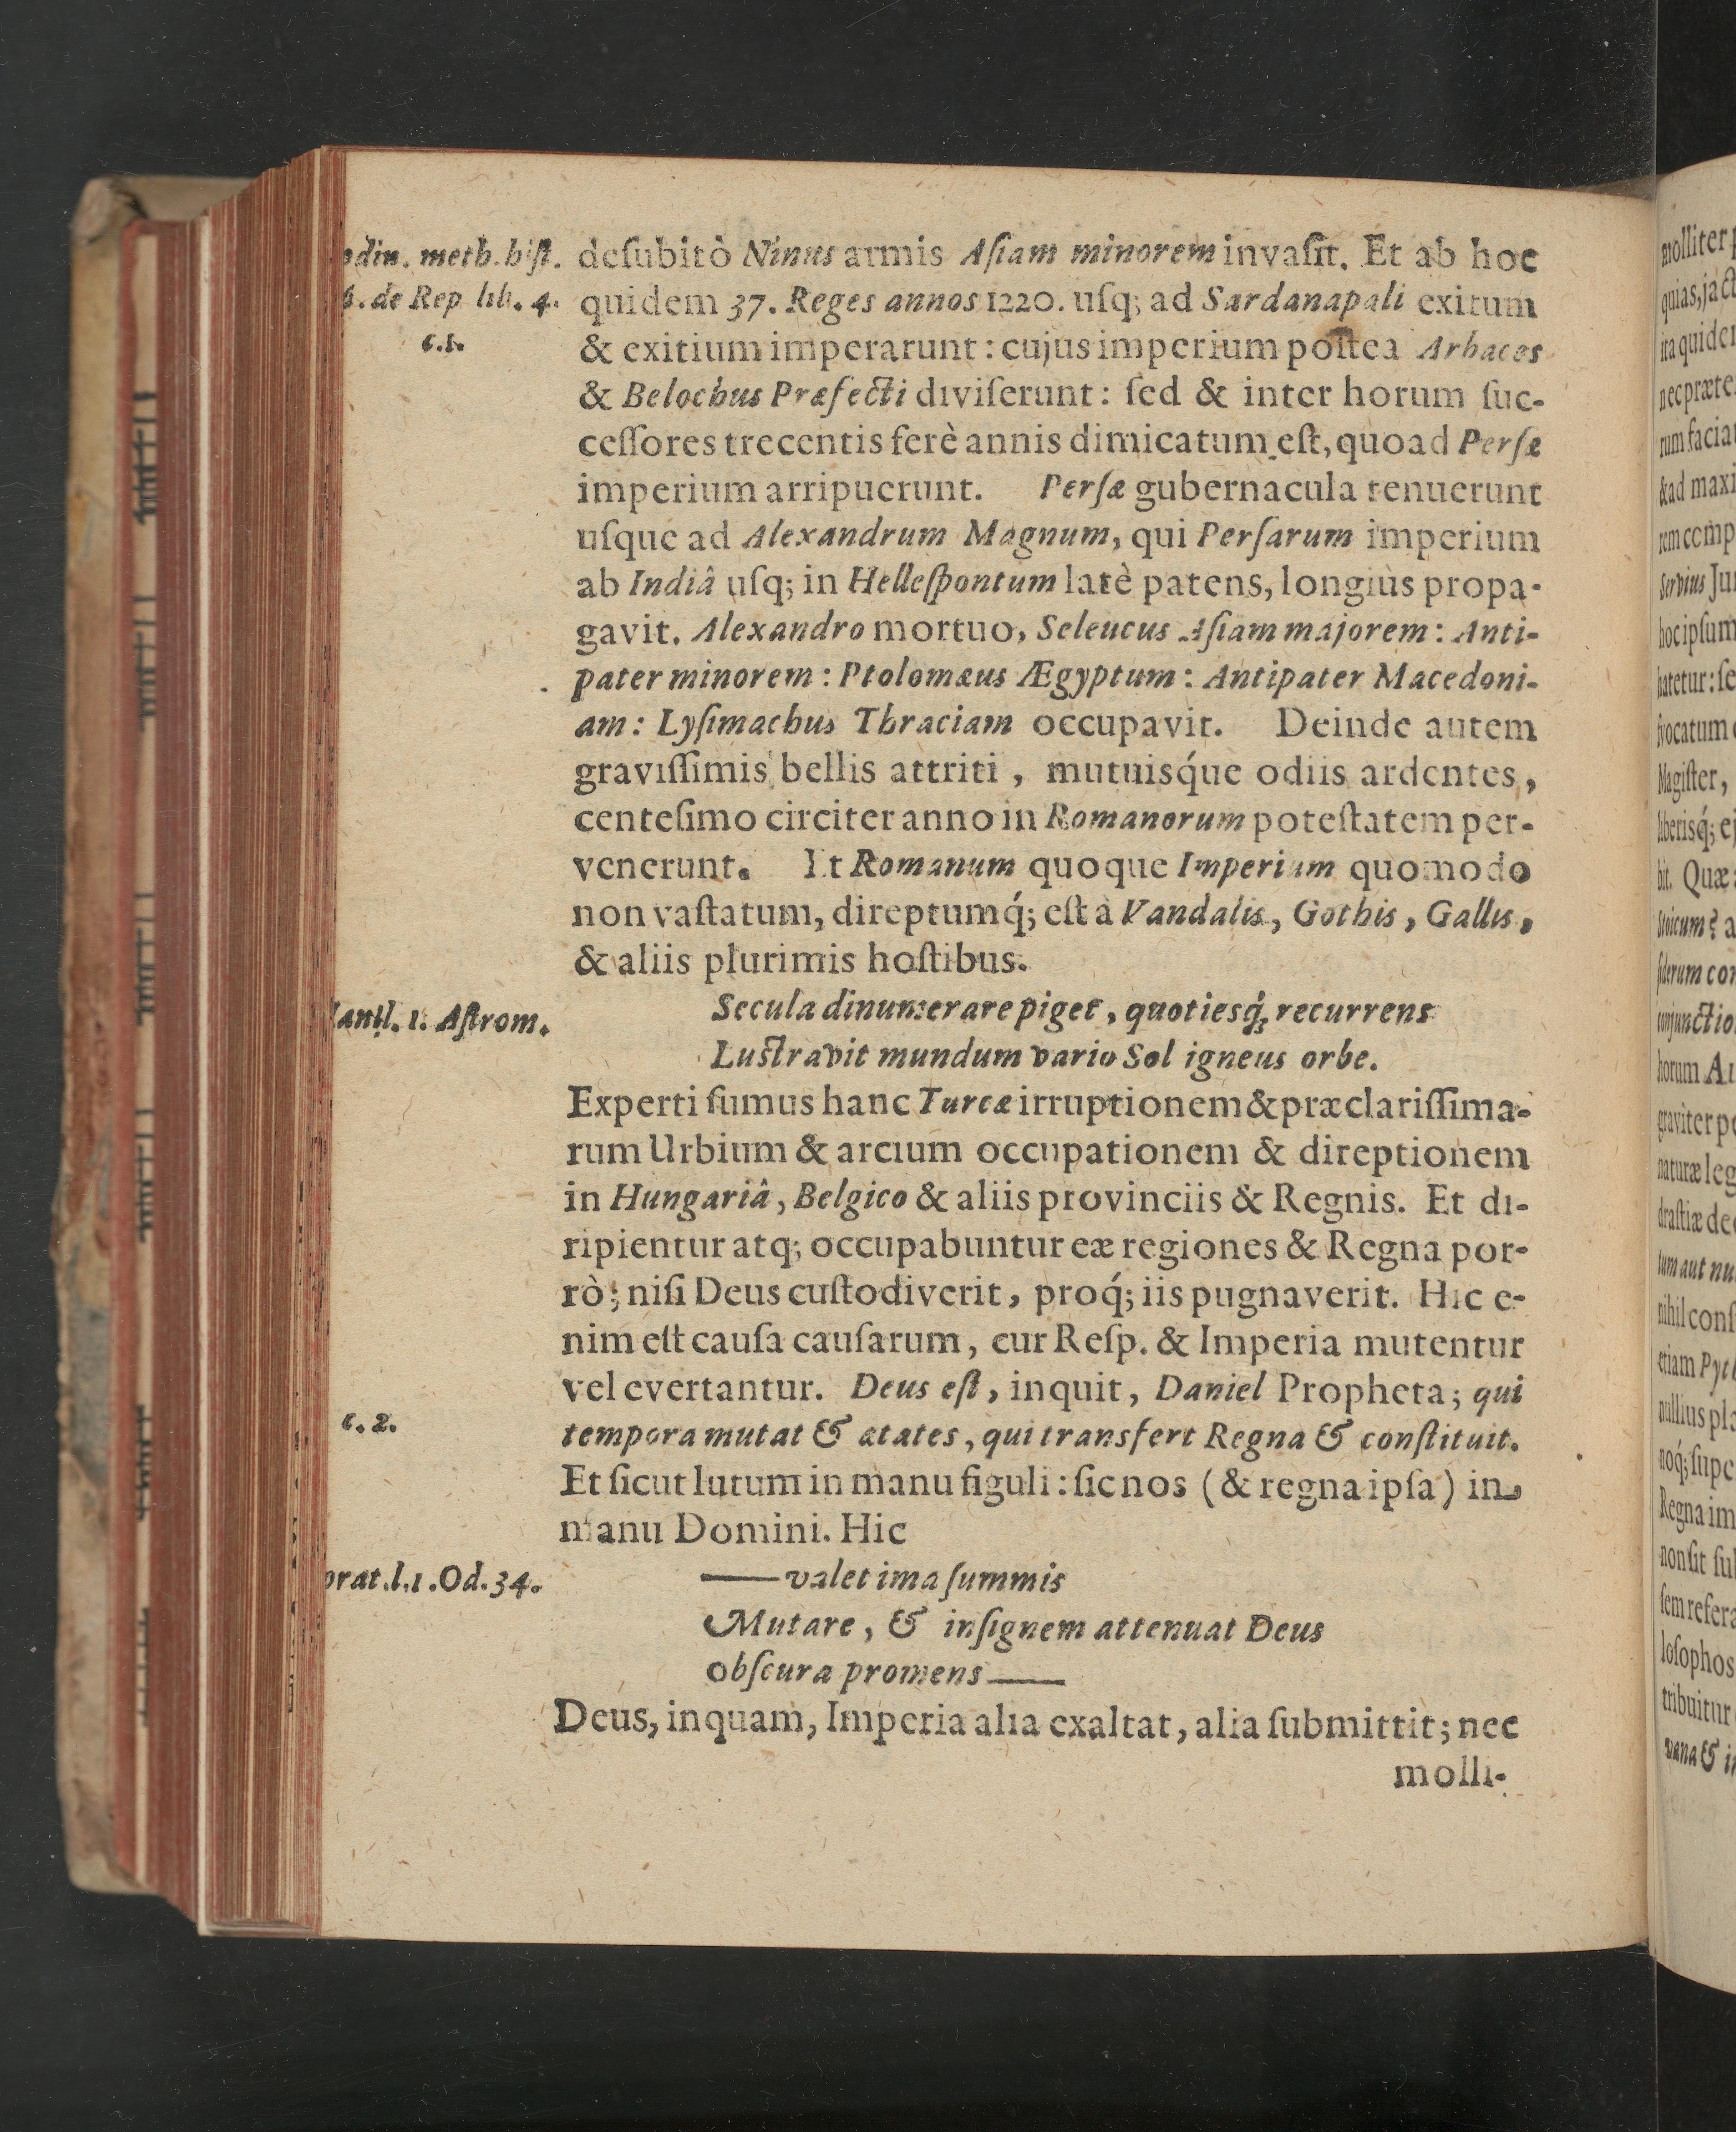 odin. meth. hiſt.
6. de Rep lib. 4.
c.1.
deſubitò Ninus armis Aſiam minorem invaſit. Et ab hoc
quidem 37. Reges annos 1220. uſq; ad Sardanapali exitum
& exitium imperarunt: cujus imperium poſtea Arbaces
& Belochus Præfecti diviſerunt: ſed & inter horum ſuc-
ceſſores trecentis ferè annis dimicatum eſt, quoad Perſæ
imperium arripuerunt. Perſæ gubernacula tenuerunt
uſque ad Alexandrum Magnum, qui Perſarum imperium
ab Indiâ uſq; in Helleſpontum latè patens, longiùs propa-
gavit. Alexandro mortuo, Seleucus Aſiam majorem: Anti-
pater minorem: Ptolomæus Ægyptum: Antipater Macedoni-
am: Lyſimachus Thraciam occupavit. Deinde autem
graviſſimis bellis attriti, mutuisq́ue odiis ardentes,
centeſimo circiter anno in Romanorum poteſtatem per-
venerunt. Et Romanum quoque Imperium quomodo
non vaſtatum, direptumq́; eſt à Vandalis, Gothis, Gallis,
& aliis plurimis hoſtibus.
Manil. 1. Aſtrom.
Secula dinumerare piget, quotiesq́; recurrens
Luſtravit mundum vario Sol igneus orbe.
Experti ſumus hanc Turcæ irruptionem & præclariſſima-
rum Urbium & arcium occupationem & direptionem
in Hungariâ, Belgico & aliis provinciis & Regnis. Et di-
ripientur atq; occupabuntur eæ regiones & Regna por-
rò; niſi Deus cuſtodiverit, proq́; iis pugnaverit. Hic e-
nim eſt cauſa cauſarum, cur Reſp. & Imperia mutentur
vel evertantur. Deus eſt, inquit, Daniel Propheta; qui
c. 2.
tempora mutat & ætates, qui transfert Regna & conſtituit.
Et ſicut lutum in manu figuli: ſic nos (& regna ipſa) in
manu Domini. Hic
orat. l. 1. Od. 34.
—valet ima ſummis
Mutare, & inſignem attenuat Deus
obſcura promens—
Deus, inquam, Imperia alia exaltat, alia ſubmittit; nec
molli-
molliter
quias, jact
ita quide
nec præte
rum facia
& ad maxi
rem comp
Servius Ju
hoc ipſum
hatetur: ſe
vocatum
Magiſter,
liberisq́; ej
bit. Quæ
Stoicum? a
ſiderum co
conjunctio
horum A
gravìter p
naturæ leg
draſtiæ de
tum aut nu
nihil conſ
etiam Pyt
nullius pl
noq́; ſupe
Regna im
non ſit ſu
ſem refer
loſophos
tribuitur
vana & i